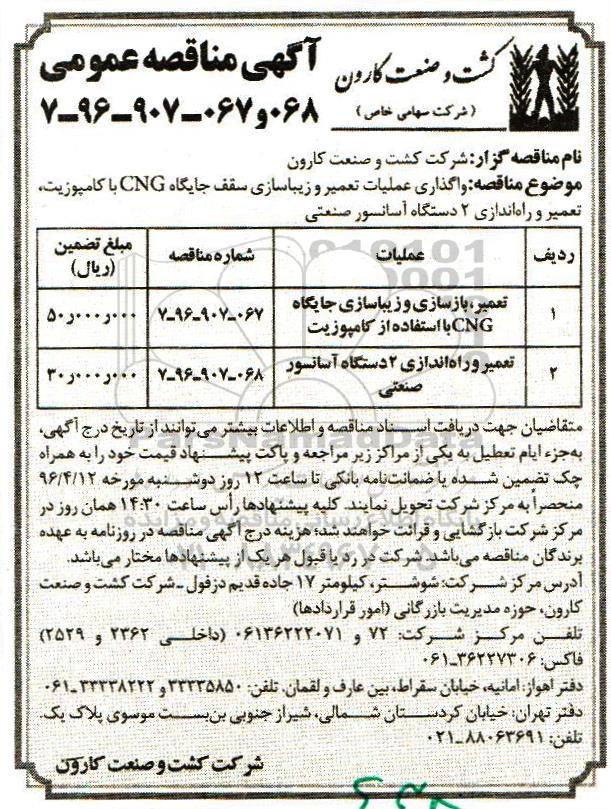 آگهی مناقصه عمومی
۰۶۸ و ۰۶۷-۹۰۷-۹۶-۷
کشت و صنعت کارون
(شرکت سهامی خاص)
نام مناقصه گزار: شرکت کشت و صنعت کارون
موضوع مناقصه: واگذاری عملیات تعمیر و زیباسازی سقف جایگاه CNG با کامپوزیت،
تعمیر و راه‌اندازی ۲ دستگاه آسانسور صنعتی
ردیف عملیات شماره مناقصه مبلغ تضمین (ریال)
۱ تعمیر، بازسازی و زیباسازی جایگاه CNG با استفاده از کامپوزیت ۷-۹۶-۹۰۷-۰۶۷ ۵۰٫۰۰۰٫۰۰۰
۲ تعمیر و راه‌اندازی ۲ دستگاه آسانسور صنعتی ۷-۹۶-۹۰۷-۰۶۸ ۳۰٫۰۰۰٫۰۰۰
متقاضیان جهت دریافت اسناد مناقصه و اطلاعات بیشتر می‌توانند از تاریخ درج آگهی،
به‌جزء ایام تعطیل به یکی از مراکز زیر مراجعه و پاکت پیشنهاد قیمت خود را به همراه
چک تضمین شده یا ضمانت‌نامه بانکی تا ساعت ۱۲ روز دوشنبه مورخه ۹۶/۴/۱۲
منحصراً به مرکز شرکت تحویل نمایند. کلیه پیشنهادها رأس ساعت ۱۴:۳۰ همان روز در
مرکز شرکت بازگشایی و قرائت خواهند شد؛ هزینه درج آگهی مناقصه در روزنامه به عهده
برندگان مناقصه می‌باشد. شرکت در رد یا قبول هر یک از پیشنهادها مختار می‌باشد.
آدرس مرکز شرکت: شوشتر، کیلومتر ۱۷ جاده قدیم دزفول - شرکت کشت و صنعت
کارون، حوزه مدیریت بازرگانی (امور قراردادها)
تلفن مرکز شرکت: ۷۲ و ۰۶۱۳۶۲۲۲۰۷۱ (داخلی ۲۳۶۲ و ۲۵۲۹)
فاکس: ۳۶۲۲۷۳۰۶-۰۶۱
دفتر اهواز: امانیه، خیابان سقراط، بین عارف و لقمان. تلفن: ۳۳۳۳۵۸۵۰ و ۳۳۳۳۸۲۲۲-۰۶۱
دفتر تهران: خیابان کردستان شمالی، شیراز جنوبی بن‌بست موسوی پلاک یک.
تلفن: ۸۸۰۶۳۶۹۱-۰۲۱
شرکت کشت و صنعت کارون